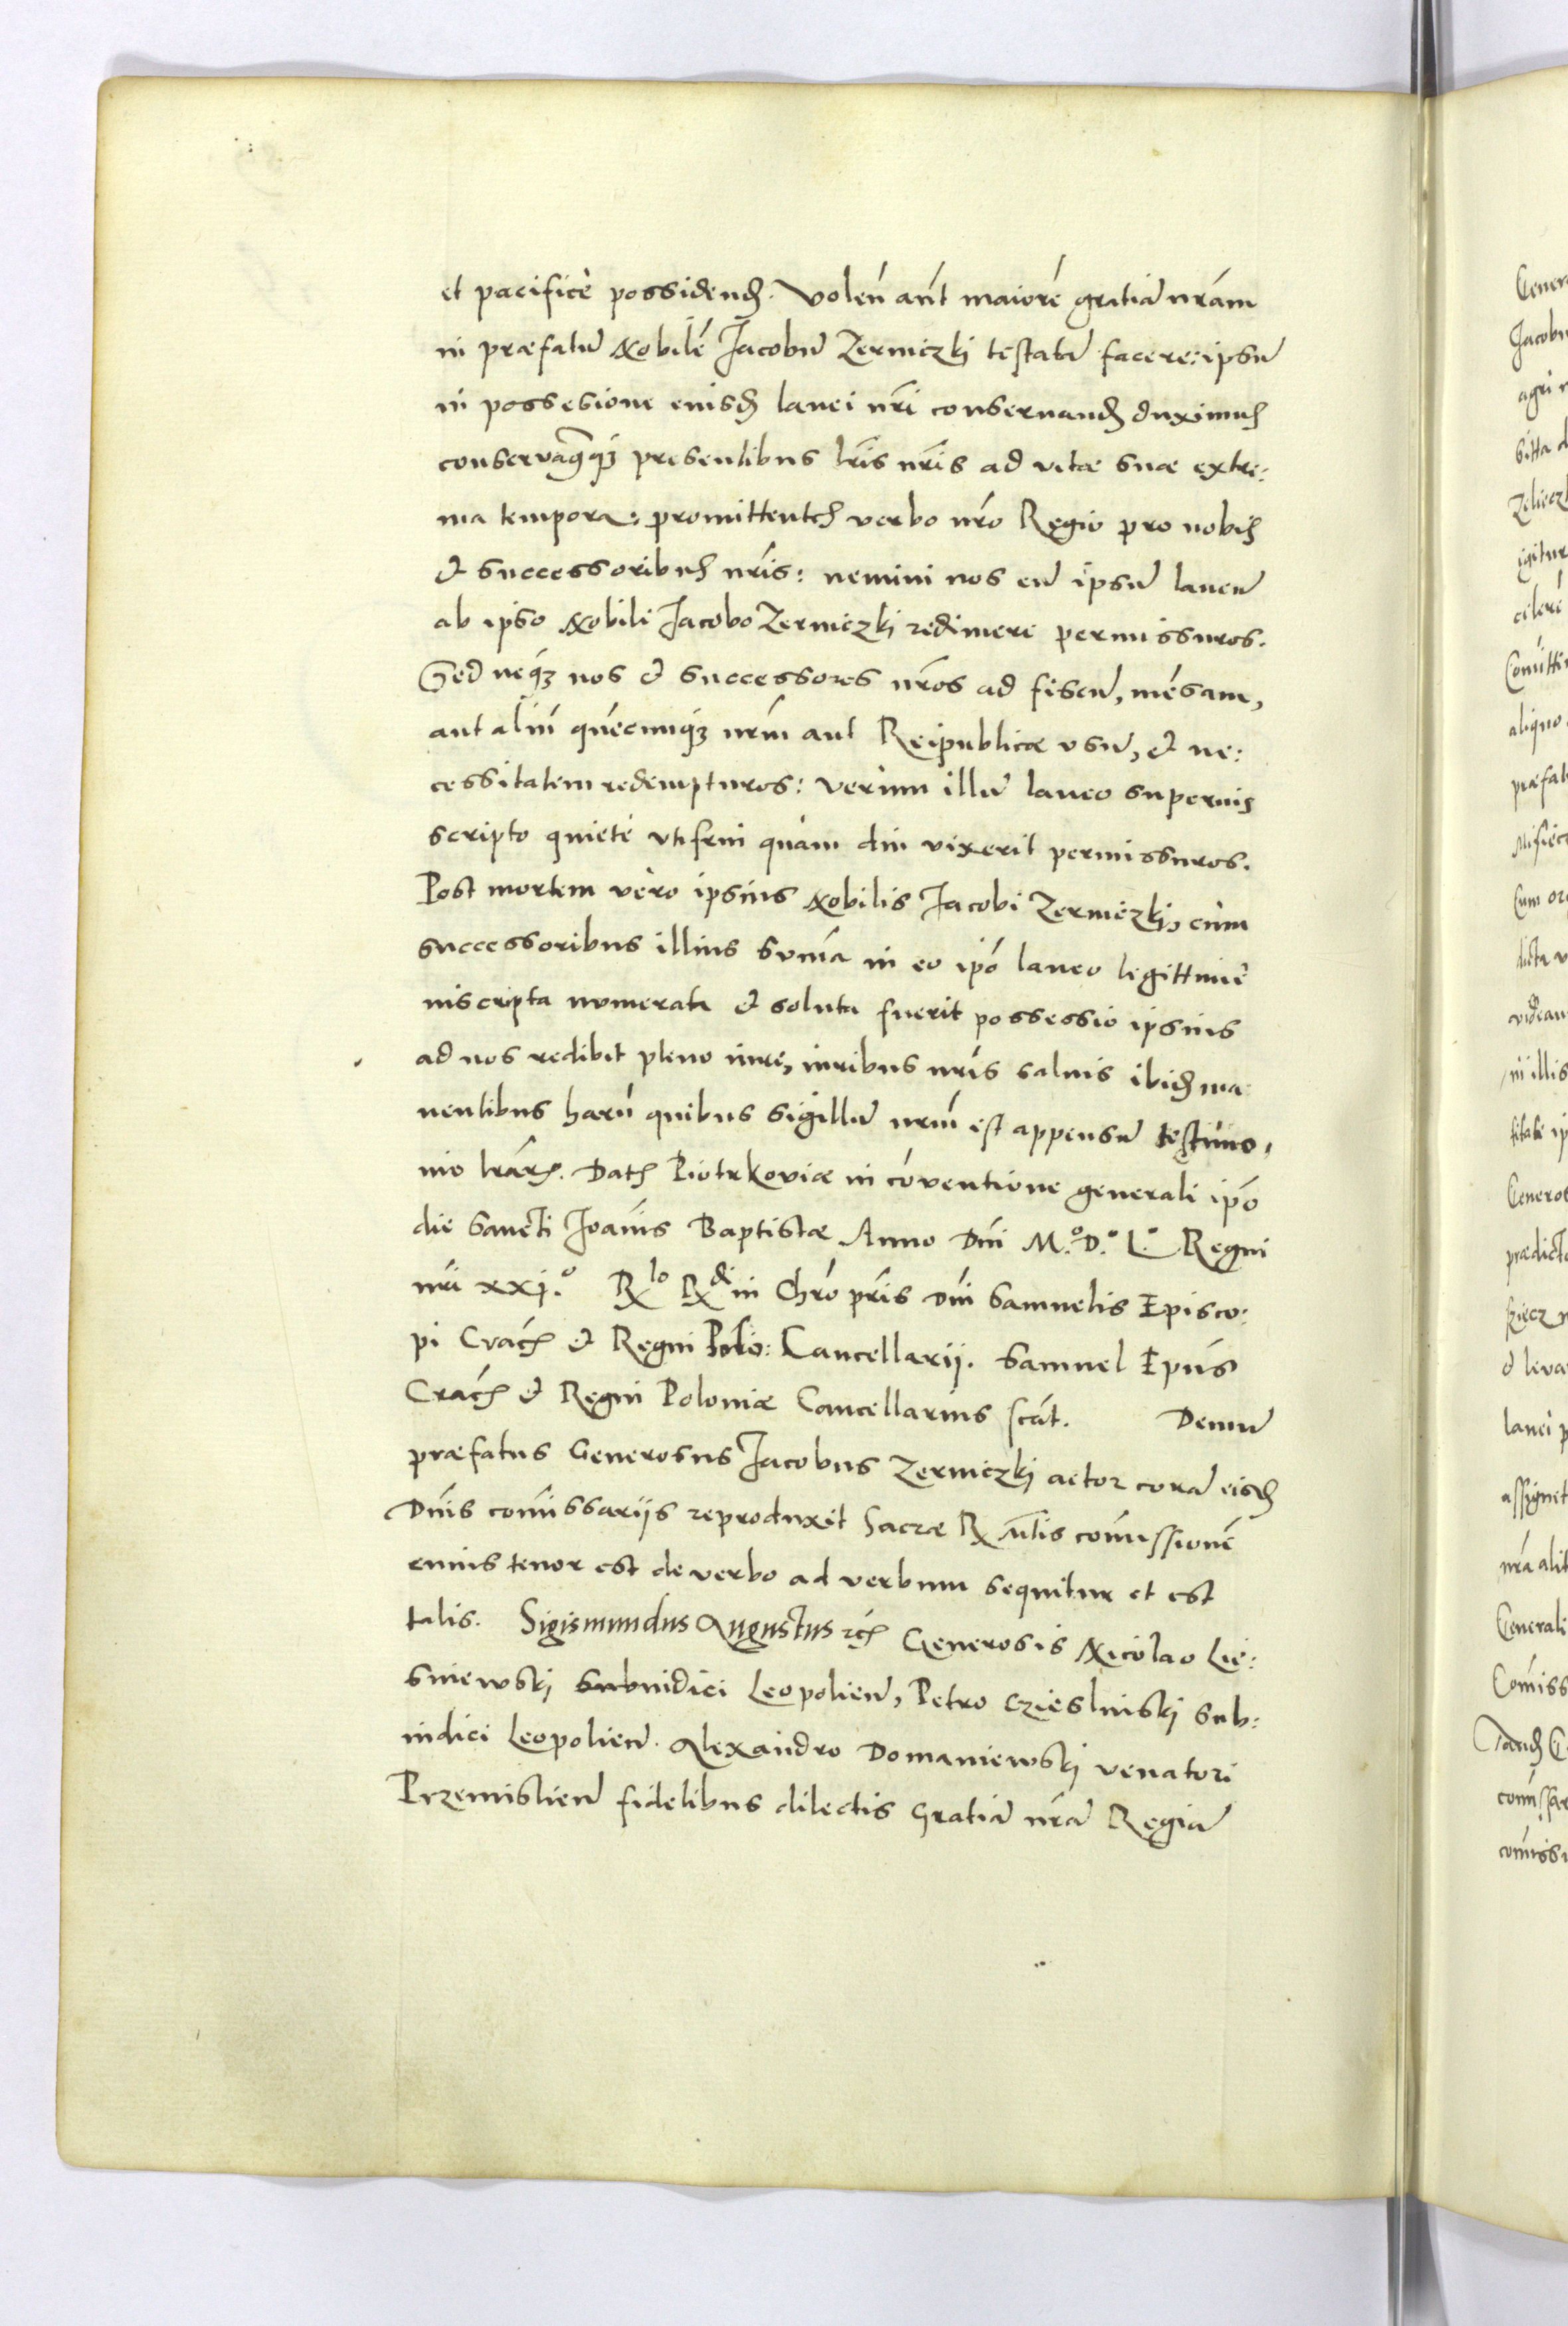 et pacificè possidend. Volen aut́ maiorẽ gratiã nrám
in præfatũ Nobilẽ Jacobũ Zerniczki testatã facere: ipsũ
in possesione eiusd lanei nrí conseruand duximus
conservamqȝ presentibus lrís nrís ad vitæ suæ extre:
ma tempora: promittentes verbo nró Regio pro nobis
& successoribus nrís: nemini nos eũ ipsũ laneũ
ab ipso Nobili Jacobo Zerniczki redimere permissuros.
Sed neqȝ nos & successores nrós ad fiscũ, mésam,
aut aliũ quẽcunqȝ nrḿ aut Reipublicæ vsũ, & ne:
cessitatem redempturos: verùm illũ laneo superius
scripto quietè vti frui quàm diu vixerit permissuros.
Post mortem vero ipsius Nobilis Jacobi Zerniczki, cùm
successoribus illius sum̃a in eo ipó laneo legittimè
inscripta numerata & soluta fuerit possessio ipsius
ad nos redibit pleno iure, iuribus nrís saluis ibid ma
nentibus harũ quibus sigillũ nrḿ est appensũ testimo,
nio lrárȝ. Dat Piotrkoviæ in cõventione generali ipó
die Sancti Joanís Baptistæ Anno Dní M.º D.º L.º Regni
nrí xxj.º Rlo Rdi in Chró prís Dní Samuelis Episco:
pi Crac & Regni Polo: Cancellarij. Samuel Epús
Crac & Regni Poloniæ Cancellarius sc̃át. Demũ
præfatus Generosus Jacobus Zerniczki actor corã eisd
Dnís comíssarijs reproduxit Sacræ R Mtís comissionẽ
cuius tenor est de verbo ad verbum sequitur et est
talis. Sigismundus Augustus rc Generosis Nicolao Lie:
sniewski Subiudici Leopolien, Petro Czieslinski Sub:
iudici Leopolien. Alexandro Domaniewski venatori
Przemislien fidelibus dilectis Gratiã nrã Regiã